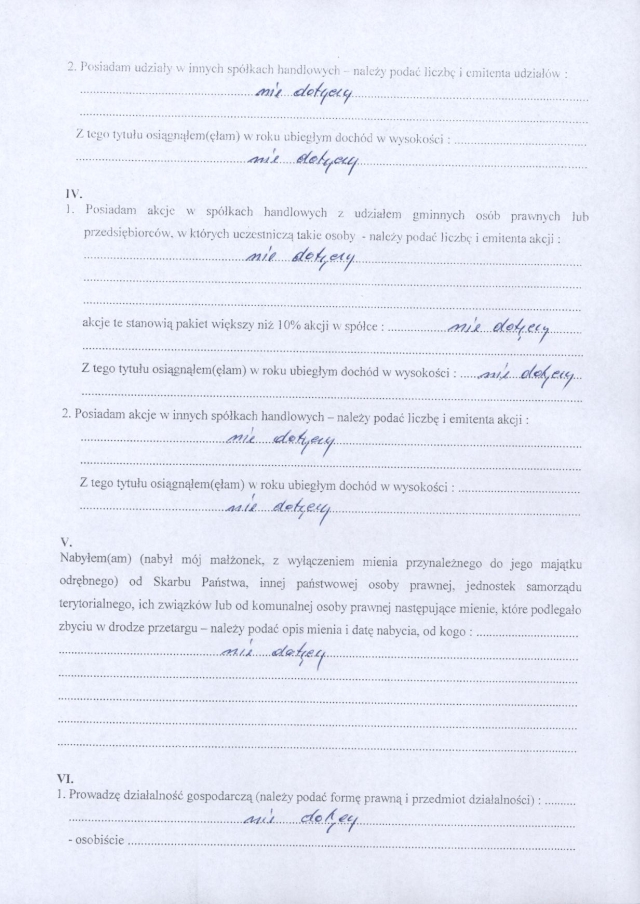 2. Posiadam udziały w innych spółkach handlowych – należy podać liczbę i emitenta udziałów :
nie dotyczy
Z tego tytułu osiągnąłem(ęłam) w roku ubiegłym dochód w wysokości :
nie dotyczy
IV.
1. Posiadam akcje w spółkach handlowych z udziałem gminnych osób prawnych lub
przedsiębiorców, w których uczestniczą takie osoby - należy podać liczbę i emitenta akcji :
nie dotyczy
akcje te stanowią pakiet większy niż 10% akcji w spółce : nie dotyczy
Z tego tytułu osiągnąłem(ęłam) w roku ubiegłym dochód w wysokości : nie dotyczy
2. Posiadam akcje w innych spółkach handlowych – należy podać liczbę i emitenta akcji :
nie dotyczy
Z tego tytułu osiągnąłem(ęłam) w roku ubiegłym dochód w wysokości :
nie dotyczy
V.
Nabyłem(am) (nabył mój małżonek, z wyłączeniem mienia przynależnego do jego majątku
odrębnego) od Skarbu Państwa, innej państwowej osoby prawnej, jednostek samorządu
terytorialnego, ich związków lub od komunalnej osoby prawnej następujące mienie, które podlegało
zbyciu w drodze przetargu – należy podać opis mienia i datę nabycia, od kogo :
nie dotyczy
VI.
1. Prowadzę działalność gospodarczą (należy podać formę prawną i przedmiot działalności) :
nie dotyczy
- osobiście